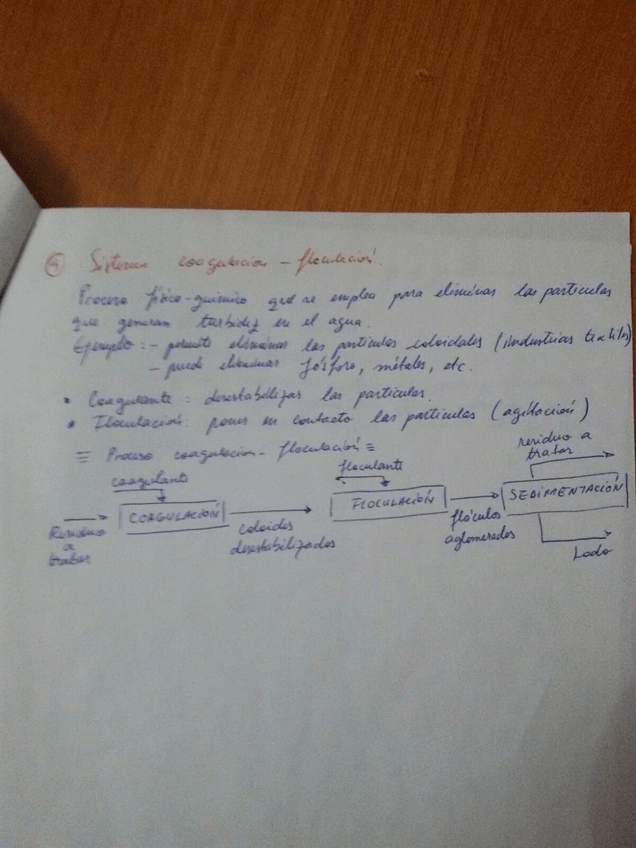 ④ Sistema coagulacion - floculación.
Proceso físico-químico que se emplea para eliminar las particulas
que generan turbidez en el agua.
Ejemplo: - permite eliminar las partículas coloidales (industrias textiles)
- puede eliminar fósforo, metales, etc.
• Coagulante: desestabilizar las particulas.
• Floculación: poner en contacto las particulas (agitación)
≡ Proceso coagulacion - floculación ≡
coagulante
floculante
residuo a
tratar
Residuo
a
tratar
COAGULACIÓN
coloides
desestabilizados
FLOCULACIÓN
flóculos
aglomerados
SEDIMENTACIÓN
Lodo